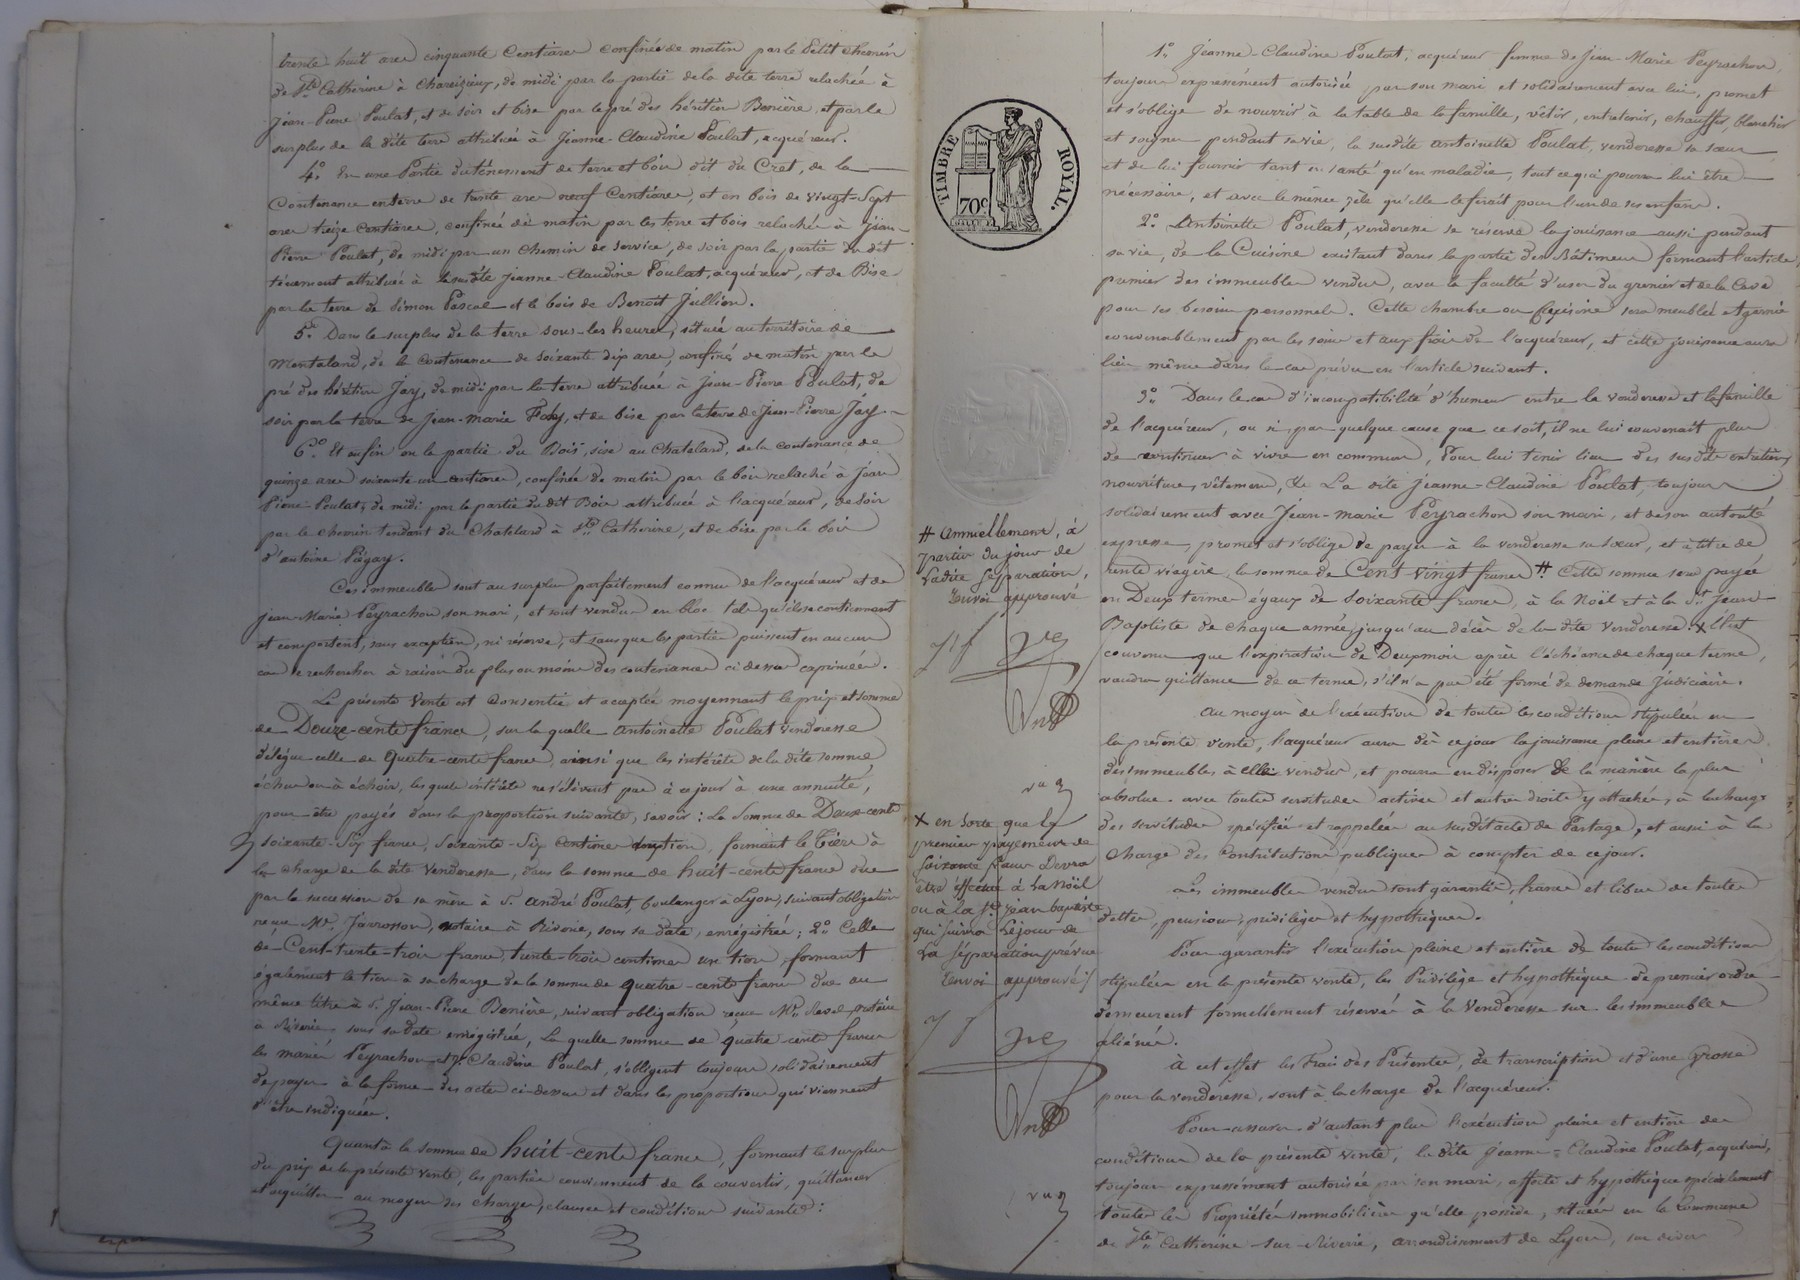 trente huit ares cinquante Centiares confinée de matin par le petit chemin
de Ste Catherine à Chareizieux, de midi par la partie de la dite terre relachée à
Jean-Pierre Poulat, et de soir et bise par le pré des héritiers Bonière, et par le
surplus de la dite terre attribuée à Jeanne-Claudine Poulat, acquéreur.
4.° En une Partie du ténement de terre et bois dit du Cret, de la
Contenance en terre de trente ares neuf Centiares, et en bois de vingt-Sept
ares treize Centiares, confinée de matin par les terre et bois relachés à Jean-
Pierre Poulat, de midi par un chemin de service, de soir par la partie du dit
ténement attribuée à la susdite Jeanne-Claudine Poulat, acquéreur, et de Bise
par la terre de Simon Pascal et le bois de Benoît Jullien.
5.° Dans le surplus de la terre sous-les heures, située au territoire de
Montaland, de la contenance de soixante dix ares, confiné de matin par le
pré des héritiers Jay, de midi par la terre attribuée à Jean-Pierre Poulat, de
soir par la terre de Jean-Marie Foby, et de bise par la terre de Jean-Pierre Jay.
6.° Et enfin en la partie du Bois, sise au Chatelard, de la contenance de
quinze ares soixante un centiares, confinée de matin par le bois relaché à Jean
Pierre Poulat, de midi par la partie du dit Bois attribuée à l'acquéreur, de soir
par le chemin tendant du Chatelard à Ste Catherine, et de bise par le bois
d'antoine Pégay.
Ces immeubles sont au surplus parfaitement connus de l'acquéreur et de
Jean-Marie Peyrachon, son mari, et sont vendus en bloc tels qu'ils se contiennent
et comportent, sans exception, ni réserve, et sans que les parties puissent en aucun
cas se rechercher à raison du plus ou moins des contenances ci dessus exprimées.
La présente vente est consentie et acceptée moyennant le prix et somme
de Douze-cents francs, sur la quelle antoinette Poulat venderesse
délégue celle de Quatre-cents francs, ainsi que les intérêts de la dite somme,
échus ou à échoir, les quels intérêts ne s'élèvent pas à ce jour à une annuité,
pour être payés dans la proportion suivante, savoir: La Somme de Deux-cents
soixante-Six francs, Soixante-Six Centimes deux tiers, formant le tiers à
la charge de la dite Venderesse, dans la somme de huit-cents francs due
par la succession de sa mère à Sr. André Poulat, boulanger à Lyon, suivant obligation
reçue Me. Jarrosson, notaire à Riverie, sous sa date, enregistrée; 2.° Celle
de Cent-trente-trois francs, trente-trois centimes un tiers, formant
également le tiers à sa charge de la somme de quatre-cents francs due au
même titre à Sr. Jean-Pierre Bonière, suivant obligation reçue Me. notaire
à Riverie, sous sa date enregistrée, La quelle somme de quatre cents francs
les mariés Peyrachon et Je. Claudine Poulat, s'obligent toujours solidairement
de payer à la forme des actes ci-dessus et dans les proportions qui viennent
d'être indiquées.
Quant à la somme de huit-cents francs, formant le surplus
du prix de la présente vente, les parties conviennent de la convertir, quittancer
et acquitter au moyen des charges, clauses et conditions suivantes:
TIMBRE ROYAL.
70c
# Annuellement, à
partir du jour de
ladite séparation,
Renvoi approuvé
X en sorte que le
premier payement de
soixante francs devra
être effectué à la Noël
ou à la St. Jean baptiste
qui suivra le jour de
la séparation prévue
Renvoi approuvé
1.° Jeanne-Claudine Poulat, acquéreur femme de Jean-Marie Peyrachon,
toujours expressément autorisée par son mari et solidairement avec lui, promet
et s'oblige de nourrir à la table de la famille, vêtir, entretenir, chauffer, blanchir
et soigner pendant sa vie, la susdite antoinette Poulat, venderesse sa sœur
et de lui fournir tant en santé qu'en maladie, tout ce qui pourra lui être
nécessaire, et avec le même zèle qu'elle le ferait pour l'un de ses enfans.
2.° Antoinette Poulat, venderesse se réserve la jouissance aussi pendant
sa vie, de la Cuisine existant dans la partie des Bâtimens formant l'article
premier des immeubles vendus, avec la faculté d'user du grenier et de la Cave
pour ses besoins personnels. Cette chambre ou Cuisine sera meublée et garnie
convenablement par les soins et aux frais de l'acquéreur, et cette jouissance aura
lieu même dans le cas prévu en l'article suivant.
3.° Dans le cas d'incompatibilité d'humeur entre la venderesse et la famille
de l'acquéreur, ou si, par quelque cause que ce soit, il ne lui convenait plus
de continuer à vivre en commun, Pour lui tenir lieu des susdits entretien,
nourriture, vêtemens, &c La dite Jeanne-Claudine Poulat, toujours
solidairement avec Jean-Marie Peyrachon son mari, et de son autorité
expresse, promet et s'oblige de payer à la venderesse sa sœur, et à titre de
rente viagère, la somme de Cent vingt francs # Cette somme sera payée
en Deux termes égaux de Soixante francs, à la Noël et à la St. Jean
Baptiste de chaque année, jusqu'au décès de la dite Venderesse. X Il est
convenu que l'expiration de Deux mois après l'échéance de chaque terme,
vaudra quittance de ce terme, s'il n'a pas été formé de demande Judiciaire.
Au moyen de l'exécution de toutes les conditions stipulées en
la présente vente, l'acquéreur aura dès ce jour la jouissance pleine et entière
des immeubles à elle vendus, et pourra en disposer de la manière la plus
absolue avec toutes servitudes actives et autres droits y attachés, à la charge
des servitudes spécifiées et rappelées au susdit acte de Partage, et aussi à la
charge des Contributions publiques à compter de ce jour.
Les immeubles vendus sont garantis, francs et libres de toutes
dettes, pensions, priviléges et hypothèques.
Pour garantir l'exécution pleine et entière de toutes les conditions
stipulées en la présente vente, les Privilège et hypothèque de premier ordre
demeurent formellement réservés à la Venderesse sur les immeubles
aliénés.
À cet effet les frais des Présentes, de transcription et d'une Grosse
pour la venderesse, sont à la charge de l'acquéreur.
Pour assurer d'autant plus l'exécution pleine et entière des
conditions de la présente vente, la dite Jeanne-Claudine Poulat, acquéreur,
toujours expressément autorisée par son mari, affecte et hypothèque spécialement
toutes les Propriétés immobilières qu'elle possède, situées en la Commune
de Ste Catherine-sur-Riverie, arrondissement de Lyon, sur divers